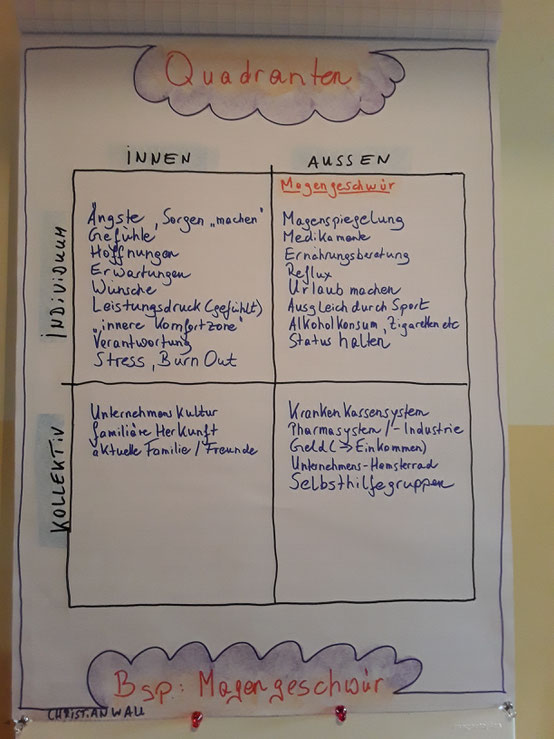 Quadranten
INNEN
AUSSEN
INDIVIDUUM
Ängste, Sorgen „machen"
Gefühle
Hoffnungen
Erwartungen
Wünsche
Leistungsdruck (gefühlt)
„innere Komfortzone"
Verantwortung
Stress, Burn Out
Magengeschwür
Magenspiegelung
Medikamente
Ernährungsberatung
Reflux
Urlaub machen
Ausgleich durch Sport
Alkoholkonsum, Zigaretten etc
Status halten
KOLLEKTIV
Unternehmens Kultur
familiäre Herkunft
aktuelle Familie / Freunde
Krankenkassensystem
Pharmasystem / -Industrie
Geld (⇒ Einkommen)
Unternehmens-Hamsterrad
Selbsthilfegruppen
Bsp: Magengeschwür
CHRISTIAN WALL